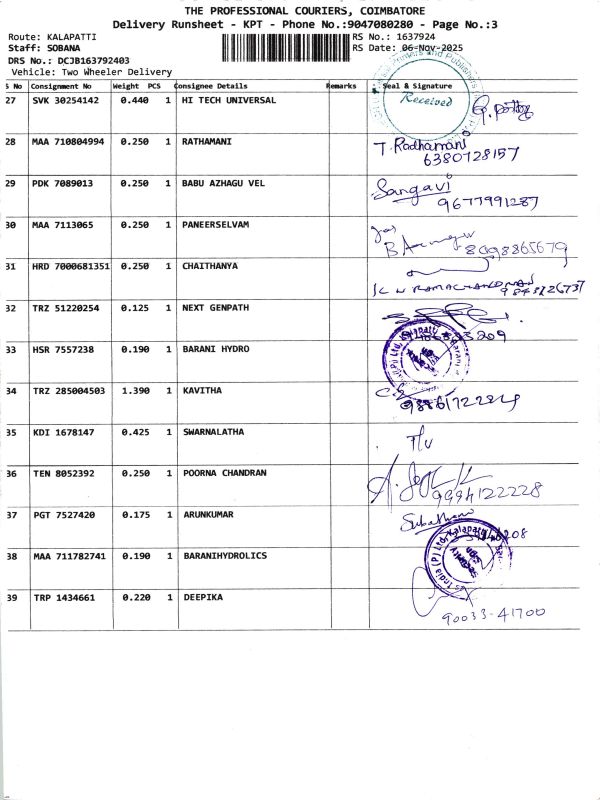 THE PROFESSIONAL COURIERS, COIMBATORE
Delivery Runsheet - KPT - Phone No.:9047080280 - Page No.:3
Route: KALAPATTI RS No.: 1637924
Staff: SOBANA RS Date: 06-Nov-2025
DRS No.: DCJB163792403
Vehicle: Two Wheeler Delivery
S No Consignment No Weight PCS Consignee Details Remarks Seal & Signature
27 SVK 30254142 0.440 1 HI TECH UNIVERSAL Received
28 MAA 710804994 0.250 1 RATHAMANI T. Radhamani
6380728157
29 PDK 7089013 0.250 1 BABU AZHAGU VEL Sangavi
9677991287
30 MAA 7113065 0.250 1 PANEERSELVAM
8098865679
31 HRD 7000681351 0.250 1 CHAITHANYA
32 TRZ 51220254 0.125 1 NEXT GENPATH
33 HSR 7557238 0.190 1 BARANI HYDRO
34 TRZ 285004503 1.390 1 KAVITHA
35 KDI 1678147 0.425 1 SWARNALATHA
36 TEN 8052392 0.250 1 POORNA CHANDRAN
9994122228
37 PGT 7527420 0.175 1 ARUNKUMAR
38 MAA 711782741 0.190 1 BARANIHYDROLICS
39 TRP 1434661 0.220 1 DEEPIKA
90033-41700